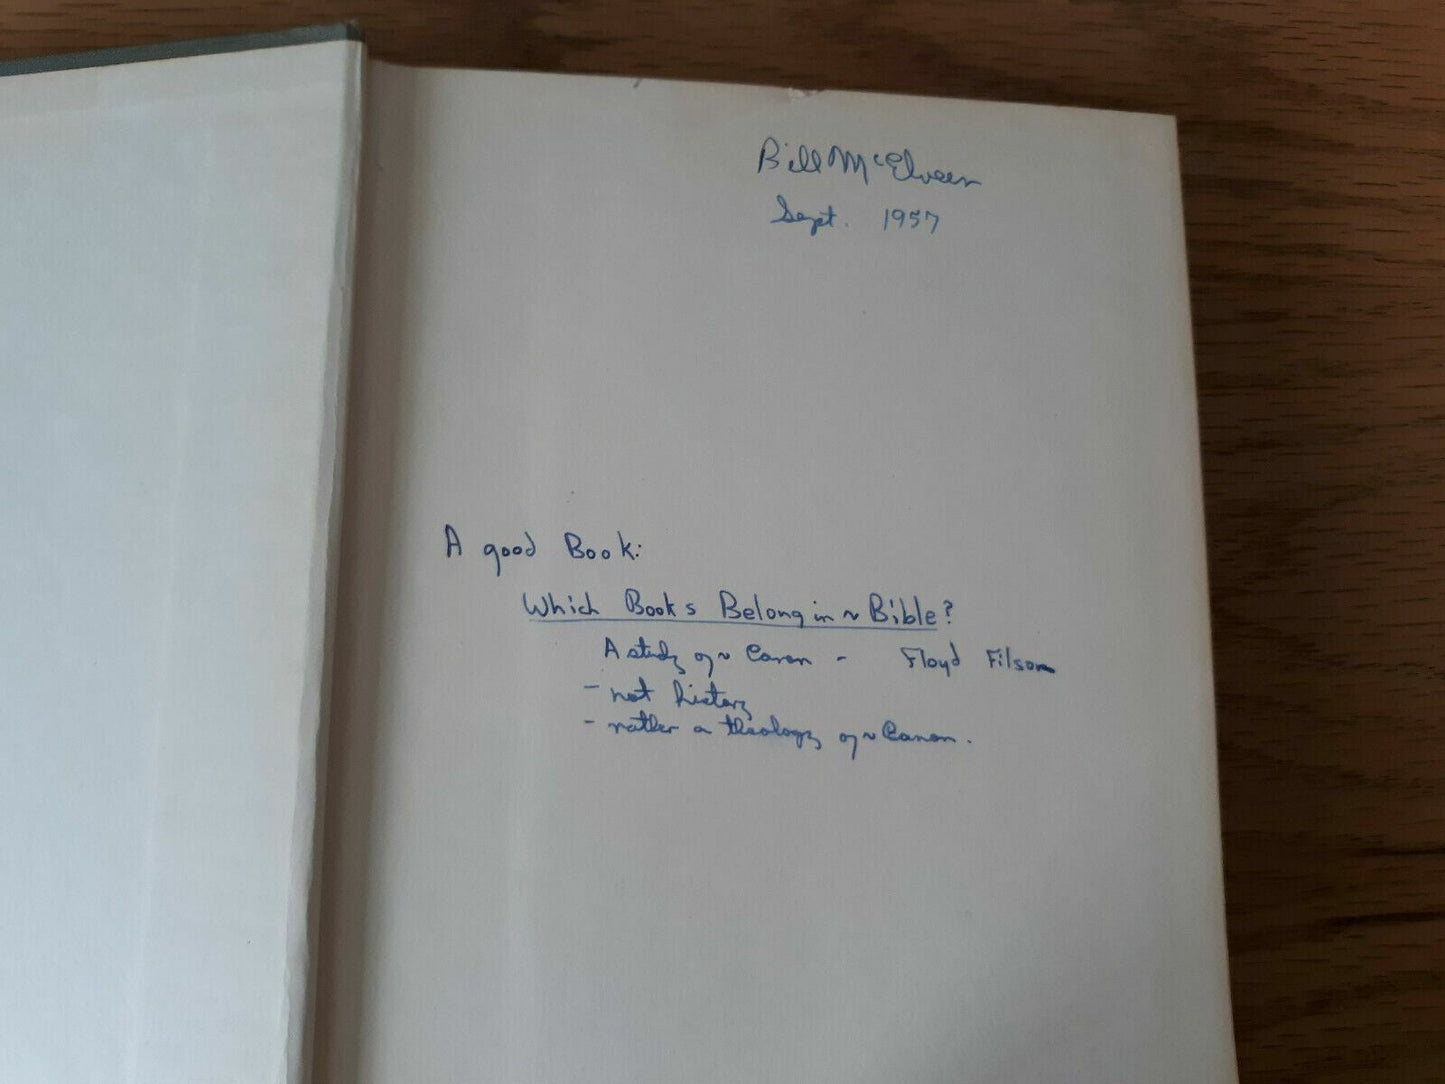 Bill McElveen
Sept. 1957
A good Book:
Which Books Belong in ~ Bible?
A study of ~ Canon - Floyd Filson
- not history
- rather a theology of ~ Canon.